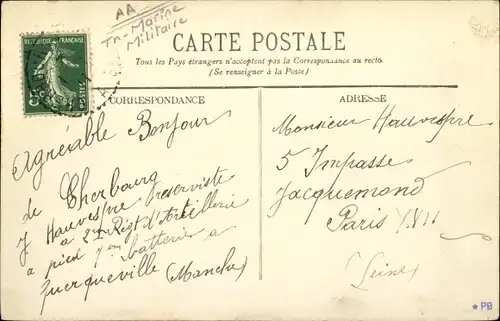 AA
Tn-Marine
Militaire
REPUBLIQUE FRANÇAISE
POSTES
CARTE POSTALE
Tous les Pays étrangers n'acceptent pas la Correspondance au recto.
(Se renseigner à la Poste)
CORRESPONDANCE
Agréable Bonjour
de Cherbourg
J Hauvespre reserviste
a 2me Régt d'Artillerie
a pied 7me batterie a
Querqueville (Manche)
ADRESSE
Monsieur Hauvespre
5 Impasse
Jacquemond
Paris XVII
Seine
*PB